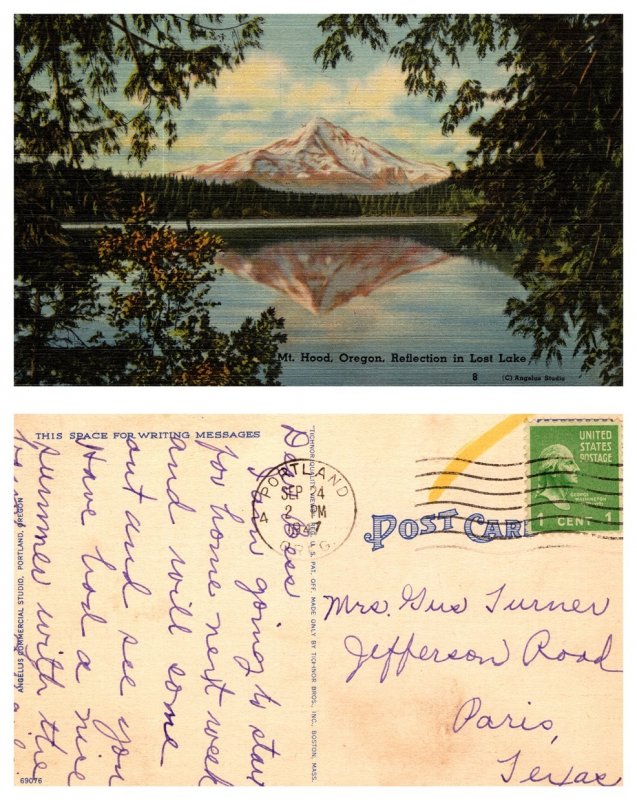 Mt. Hood, Oregon, Reflection in Lost Lake
8 (C) Angelus Studio
THIS SPACE FOR WRITING MESSAGES
Dear
I am going to start
for home next week
and will some
out and see you
Have had a nice
summer with the
ANGELUS COMMERCIAL STUDIO, PORTLAND, OREGON
69076
TICHNOR QUALITY VIEWS, REG. U. S. PAT. OFF. MADE ONLY BY TICHNOR BROS., INC., BOSTON, MASS.
PORTLAND
SEP 4
2 PM
4
OREG.
POST CARD
UNITED
STATES
POSTAGE
GEORGE
WASHINGTON
1 CENT 1
Mrs. Gus Turner
Jefferson Road
Paris,
Texas